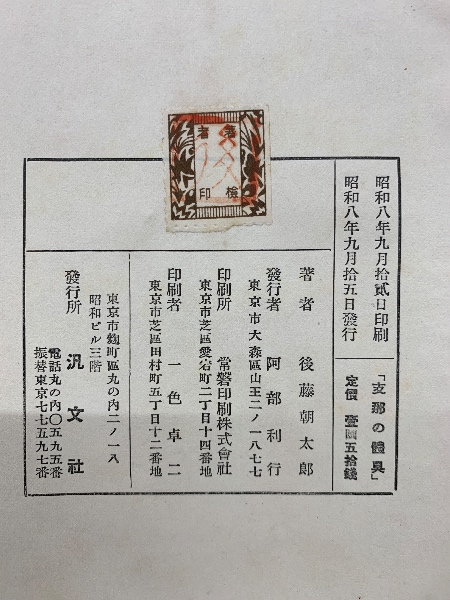 著者
檢印
昭和八年九月拾貳日印刷
昭和八年九月拾五日發行
「支那の體臭」
定價 壹圓五拾錢
著者 後藤朝太郎
發行者 阿部利行
東京市大森區山王二ノ一八七七
印刷所 常磐印刷株式會社
東京市芝區愛宕町二丁目十四番地
印刷者 一色卓二
東京市芝區田村町五丁目十二番地
東京市麴町區丸の内二ノ一八
昭和ビル三階
發行所 汎文社
電話丸の内〇五九五番
振替東京七七五九七番